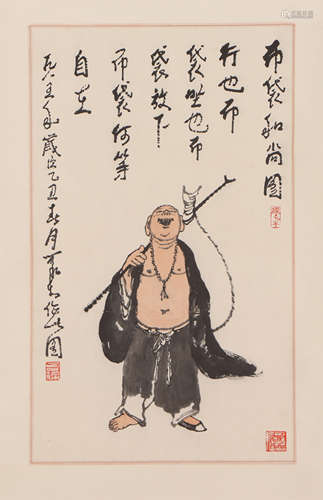 布袋和尚图
行也布
袋坐也布
袋放下
布袋何等
自在
一九八五年歲次乙丑春月作此图